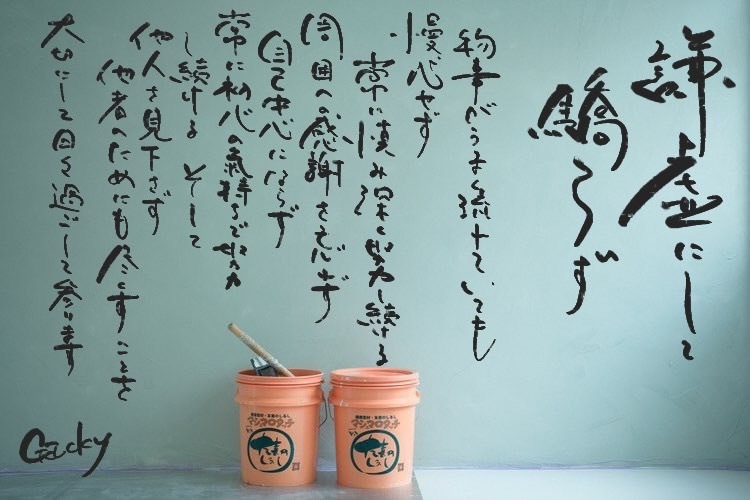 謙虚にして
驕らず
物事がうまく流れていても
慢心せず
常に慎み深く努力し続ける
周囲への感謝を忘れず
自己中心にならず
常に初心の気持ちで努力
し続ける そして
他人を見下さず
他者のためにも尽くすことを
大切にして日々過ごして参ります
Gacky
マシマロタッチ